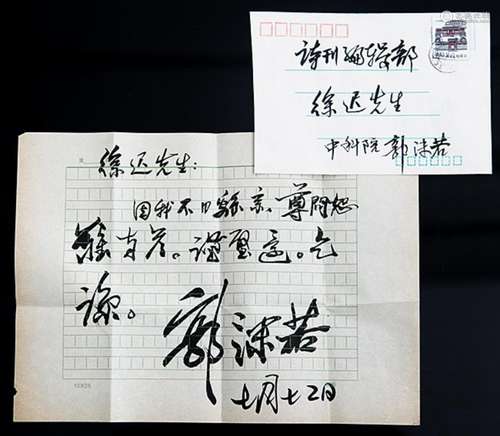 诗刊编辑部
徐迟先生
中科院 郭沫若
徐迟先生:
因我不日离京,尊问恕
难奉答。谨璧还。乞
谅。
郭沫若
七月十二日